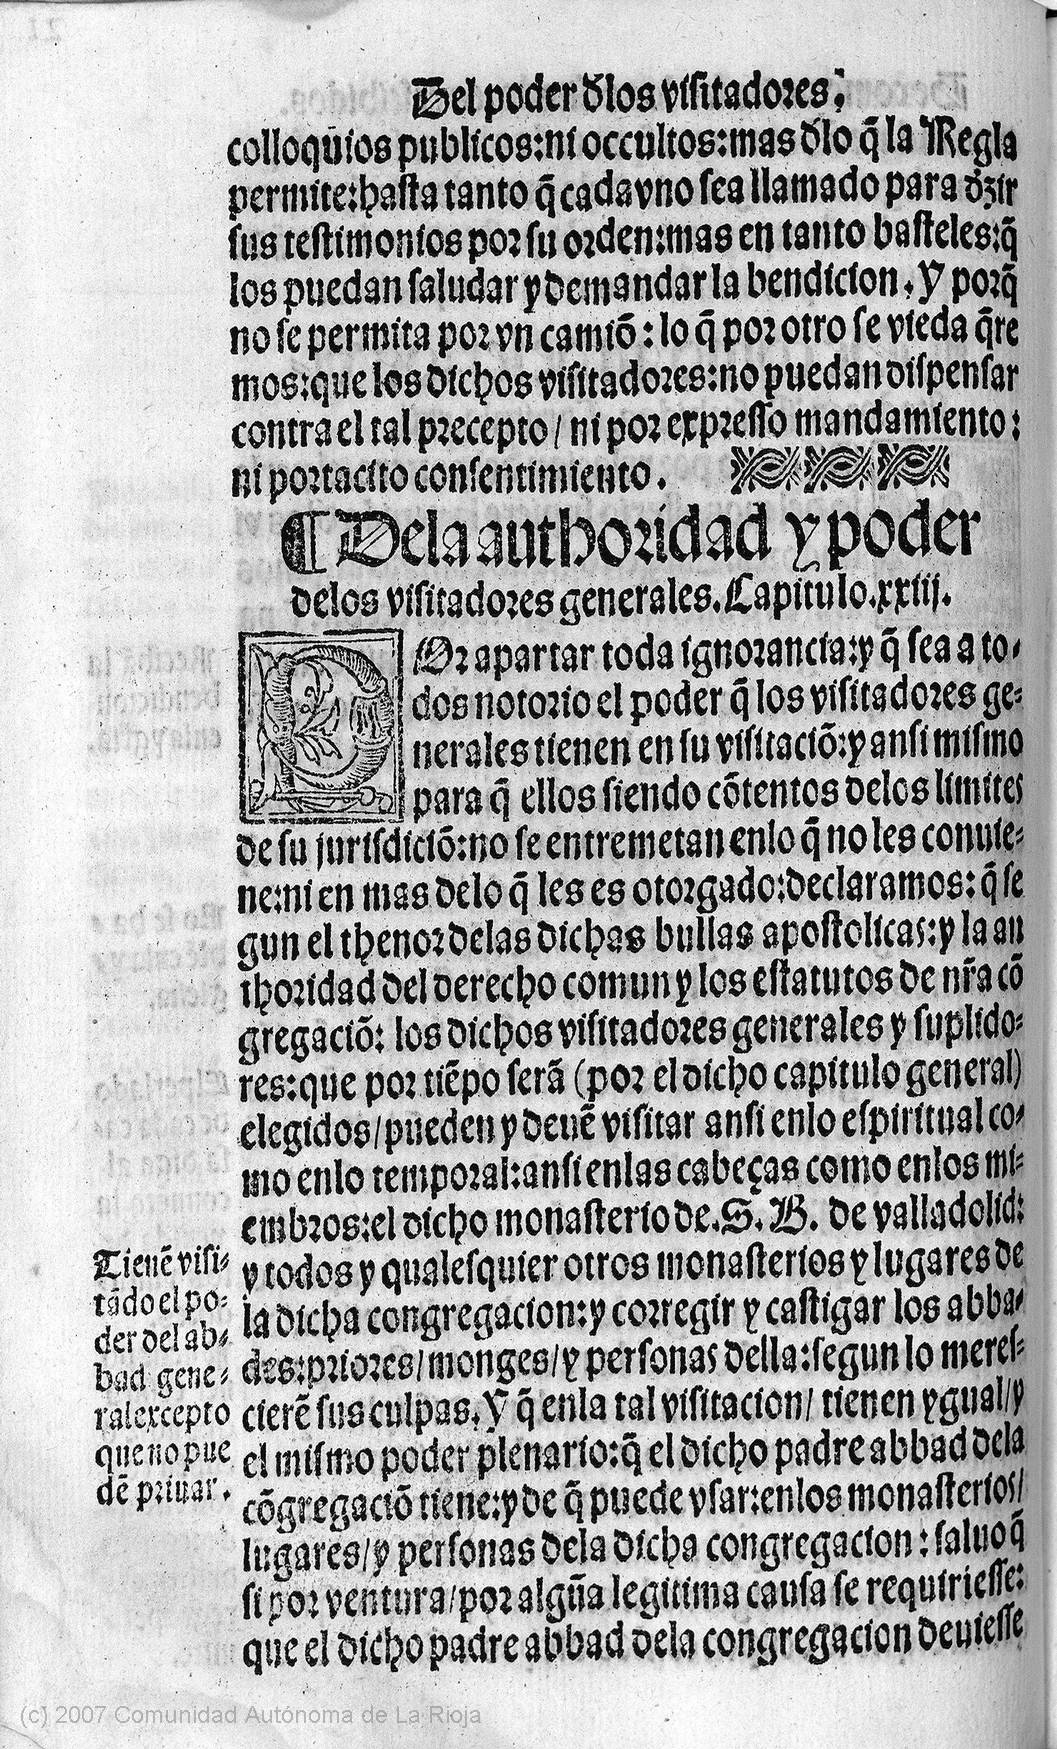 Del poder d̃los visitadores.
colloquios publicos:ni occultos:mas d̃lo q̃ la Regla
permite:hasta tanto q̃ cadavno sea llamado para d̃zir
sus testimonios por su orden:mas en tanto basteles:q̃
los puedan saludar y demandar la bendicion. Y porq̃
no se permita por vn camiõ: lo q̃ por otro se vieda q̃re
mos:que los dichos visitadores:no puedan dispensar
contra el tal precepto/ ni por expresso mandamiento:
ni por tacito consentimiento.
¶ Dela authoridad y poder
delos visitadores generales. Capitulo.xxiij.
POr apartar toda ignorancia:y q̃ sea a to-
dos notorio el poder q̃ los visitadores ge-
nerales tienen en su visitaciõ:y ansi mismo
para q̃ ellos siendo cõtentos delos limites
de su jurisdiciõ:no se entremetan enlo q̃ no les conuie-
ne:ni en mas delo q̃ les es otorgado:declaramos: q̃ se
gun el thenor delas dichas bullas apostolicas:y la au
thoridad del derecho comun y los estatutos de nr̃a cõ
gregaciõ: los dichos visitadores generales y suplido-
res:que por tiẽpo serã (por el dicho capitulo general)
elegidos/pueden y deuẽ visitar ansi enlo espiritual co-
mo enlo temporal:ansi enlas cabeças como enlos mi-
embros:el dicho monasterio de.S. B. de valladolid:
y todos y qualesquier otros monasterios y lugares de
la dicha congregacion:y corregir y castigar los abba-
des:priores/monges/y personas della:segun lo meres-
cierẽ sus culpas. Y q̃ enla tal visitacion/ tienen ygual/y
el mismo poder plenario:q̃ el dicho padre abbad dela
cõgregaciõ tiene:y de q̃ puede vsar:enlos monasterios/
lugares/y personas dela dicha congregacion: saluo q̃
si por ventura/por algũa legitima causa se requiriesse:
que el dicho padre abbad dela congregacion deuiesse
Tienẽ visi-
tãdo el po-
der del ab-
bad gene-
ral excepto
que no pue
dẽ priuar.
(c) 2007 Comunidad Autónoma de La Rioja